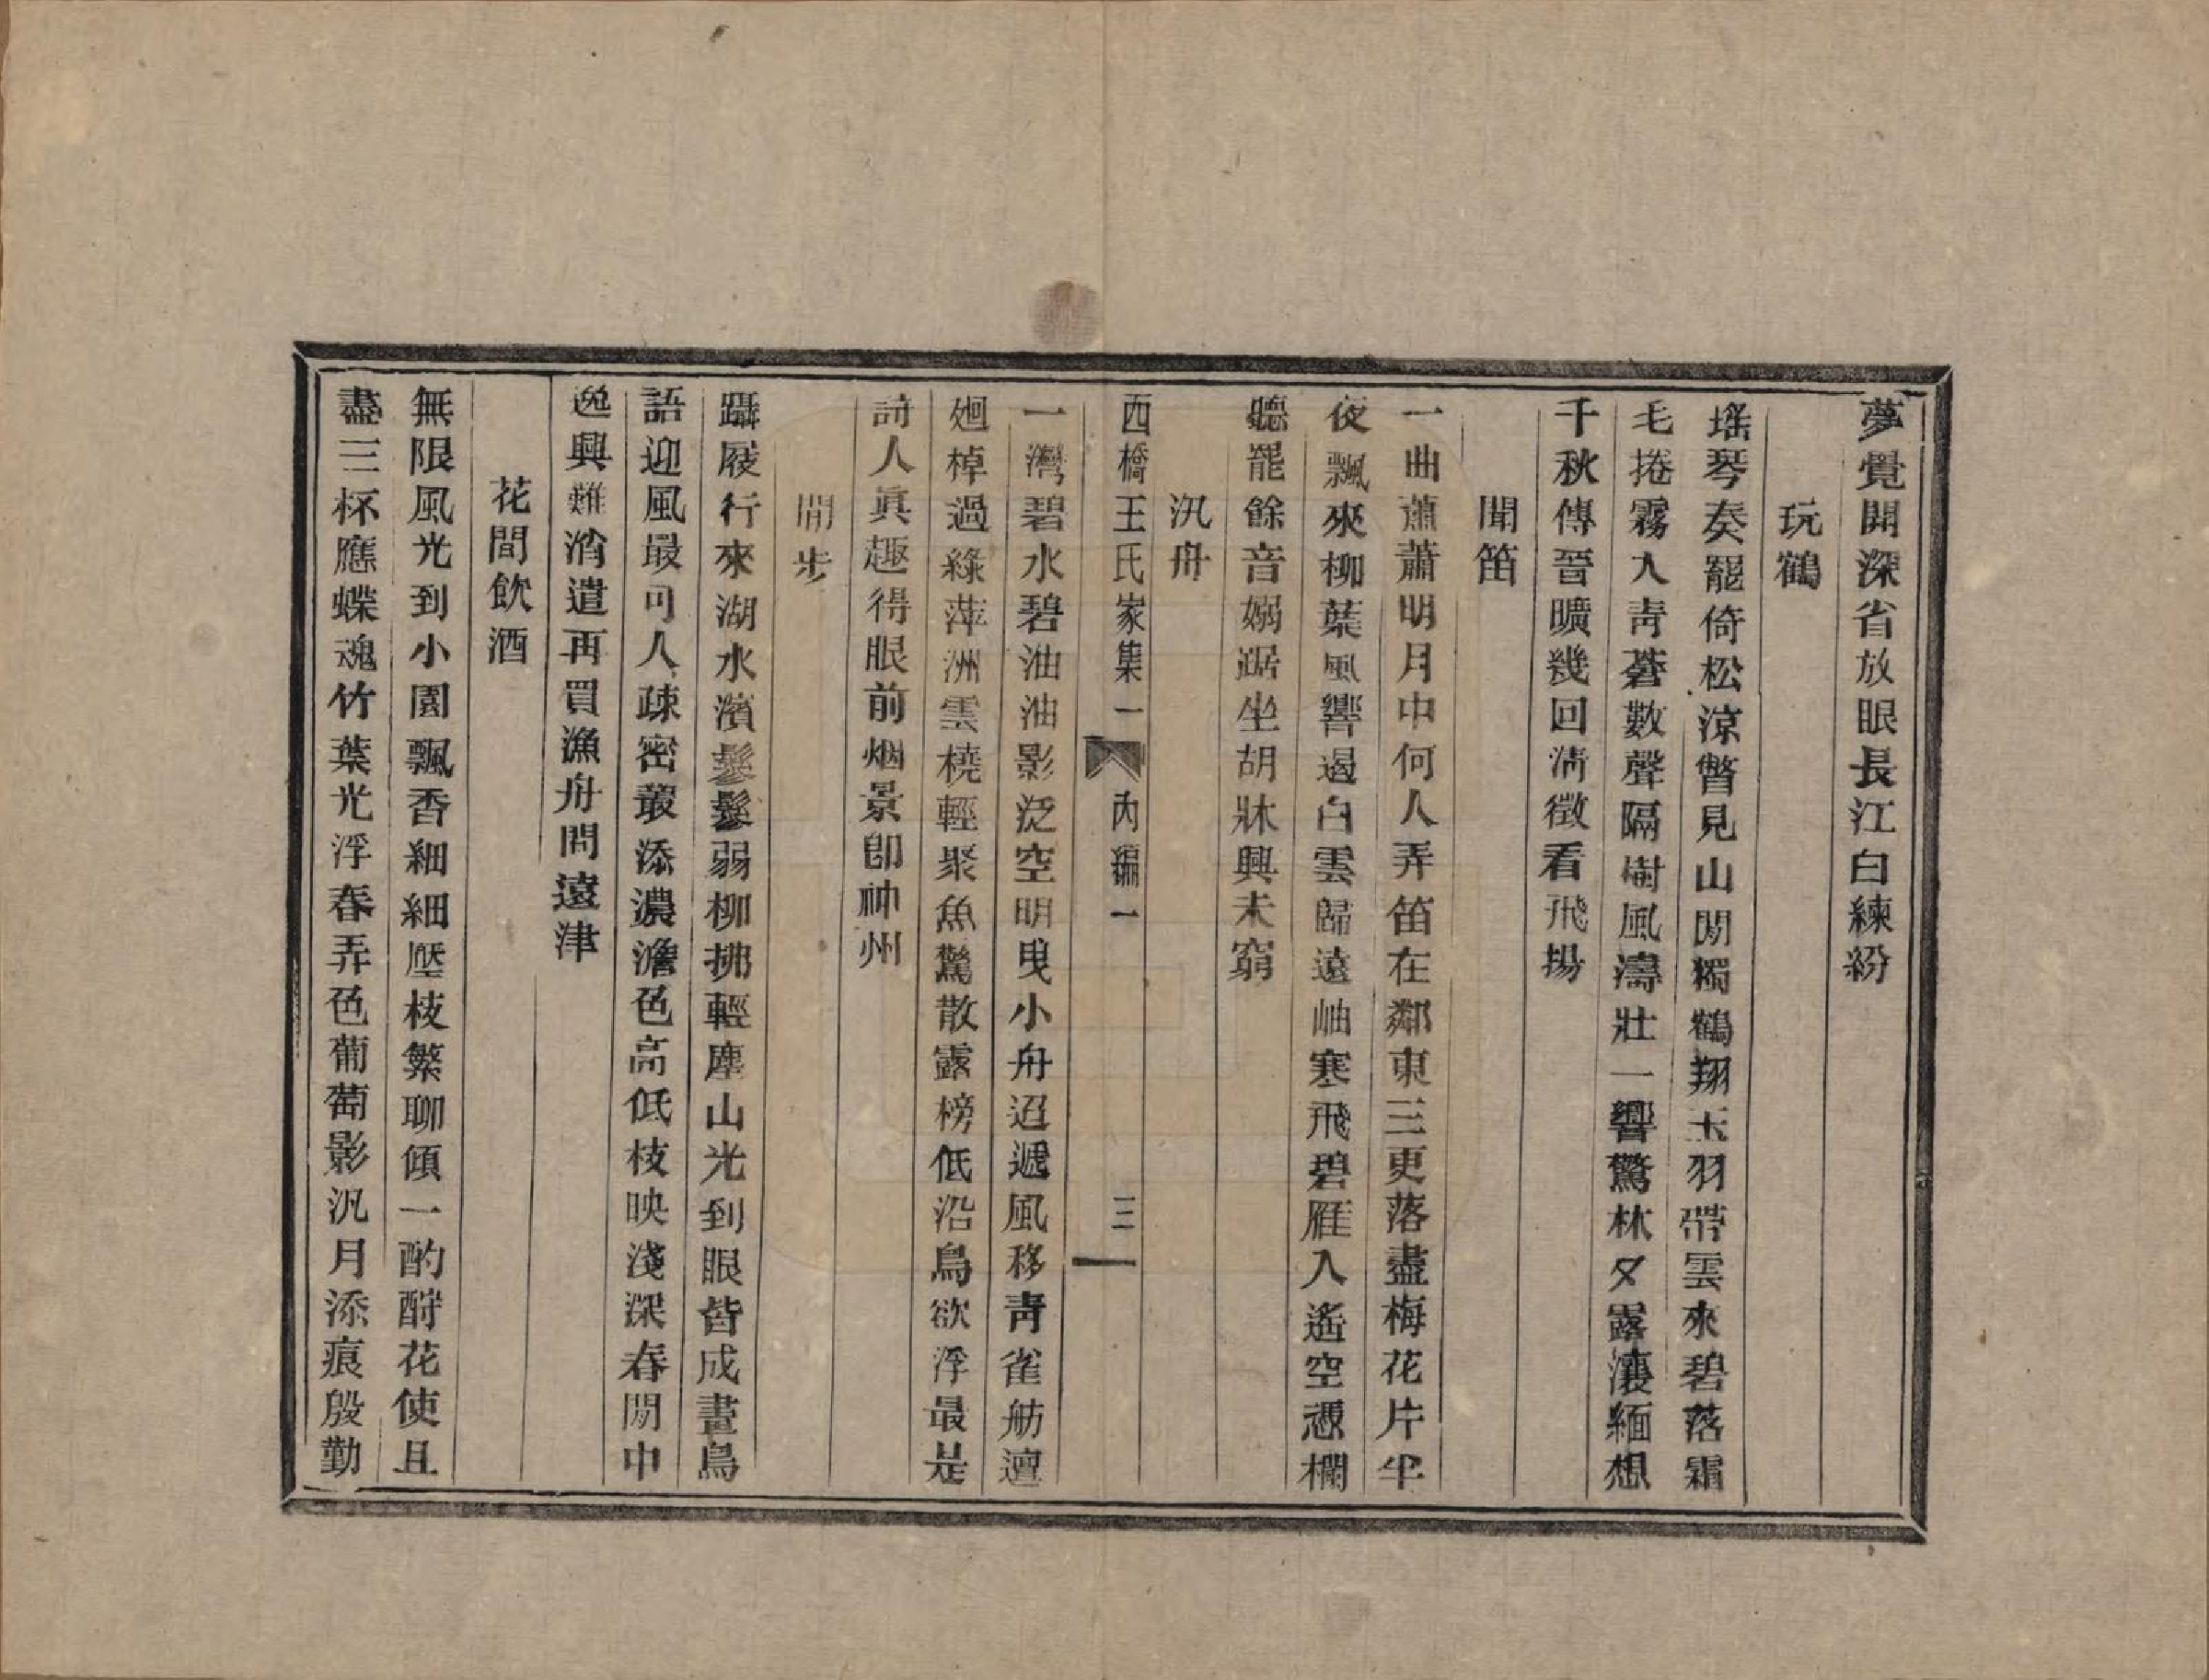 夢覺開深省放眼長江白練紛
玩鶴
瑤琴奏罷倚松涼瞥見山閒獨鶴翔玉羽帶雲來碧落霜
毛捲霧入青蒼數聲隔樹風濤壯一響驚林夕露瀼緬想
千秋傳晉曠幾回淸徵看飛揚
聞笛
一曲蕭蕭明月中何人弄笛在鄰東三更落盡梅花片半
夜飄來柳葉風響遏白雲歸遠岫寒飛碧雁入遙空憑欄
聽罷餘音嫋踞坐胡牀興未窮
汎舟
西橋王氏家集一 內編一 三
一灣碧水碧油油影泛空明曳小舟迢遞風移青雀舫邅
廻棹過綠萍洲雲橈輕聚魚驚散露榜低沿鳥欲浮最是
詩人眞趣得眼前烟景卽神州
閒步
躡屐行來湖水濱鬖鬖弱柳拂輕塵山光到眼皆成畫鳥
語迎風最可人疎密叢添濃澹色高低枝映淺深春閒中
逸興難消遣再買漁舟問遠津
花間飲酒
無限風光到小園飄香細細壓枝繁聊傾一酌酹花使且
盡三杯應蝶魂竹葉光浮春弄色葡萄影汎月添痕殷勤